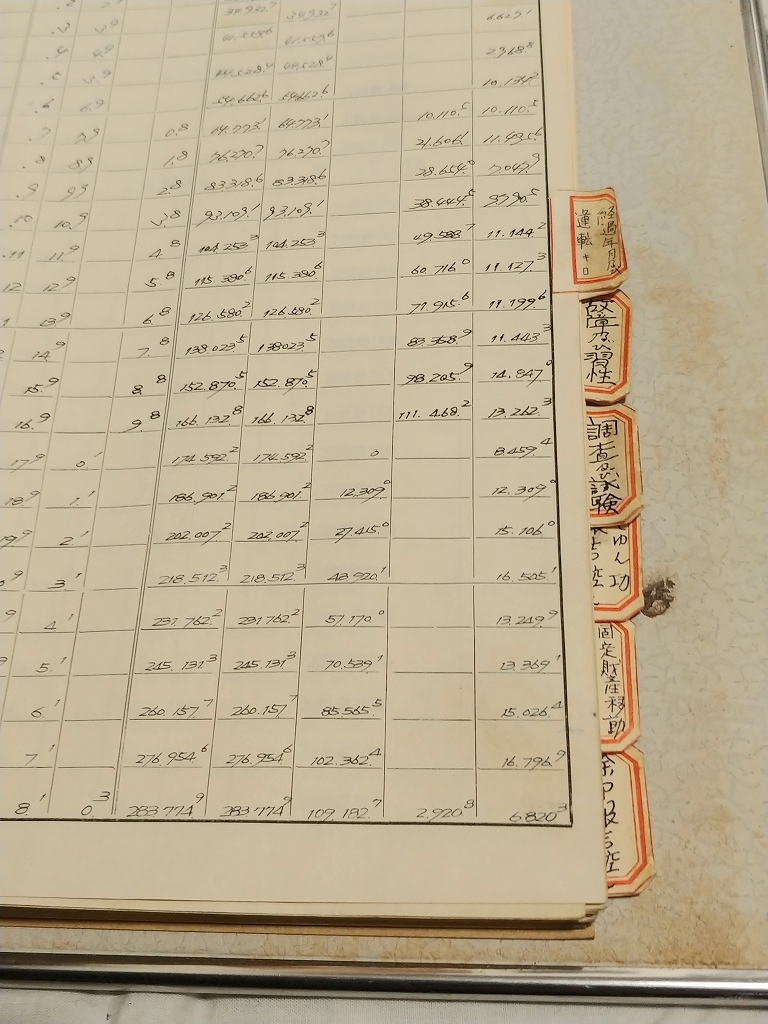 34.932⁷ 34.932⁷ 6.627¹
41.559⁶ 41.559⁶
44.528⁴ 44.528⁴ 2.968⁸
.6 6⁹ 54.662⁶ 54.662⁶ 10.134²
.7 7⁹ 0.⁸ 64.773¹ 64.773¹ 10.110⁵ 10.110⁵
.8 8⁹ 1.⁸ 76.270⁷ 76.270⁷ 21.606¹ 11.495⁶
.9 9⁹ 2.⁸ 83.318⁶ 83.318⁶ 28.654⁰ 7.047⁹
.10 10.⁹ 3.⁸ 93.109¹ 93.109¹ 38.444⁵ 9.790⁵
.11 11⁹ 4.⁸ 104.253³ 104.253³ 49.588⁷ 11.144²
12 12⁹ 5.⁸ 115.380⁶ 115.380⁶ 60.716⁰ 11.127³
1 13⁹ 6⁸ 126.580² 126.580² 71.915⁶ 11.199⁶
14.⁹ 7.⁸ 138023⁵ 138023⁵ 83.358⁹ 11.443³
15.⁹ 8.⁸ 152.870⁵ 152.870⁵ 98.205⁹ 14.847⁰
16.⁹ 9.⁸ 166.132⁸ 166.132⁸ 111.468² 13.262³
17⁹ 0.¹ 174.592² 174.592² 0 8.459⁴
18⁹ 1.¹ 186.901² 186.901² 12.309⁰ 12.309⁰
19⁹ 2.¹ 202.007² 202.007² 27.415⁰ 15.106⁰
⁹ 3.¹ 218.512³ 218.512³ 43.920¹ 16.505¹
⁹ 4.¹ 231.762² 231.762² 57.170⁰ 13.249⁹
5.¹ 245.131³ 245.131³ 70.539¹ 13.369¹
6.¹ 260.157⁷ 260.157⁷ 85.565⁵ 15.026⁴
7.¹ 276.954⁶ 276.954⁶ 102.362⁴ 16.796⁹
8.¹ 0.³ 283.774⁹ 283.774⁹ 109.182⁷ 2.920⁸ 6.820³
経過年月及
運転キロ
故障及び習性
調査及び試験
しゅん功
固定財産移動